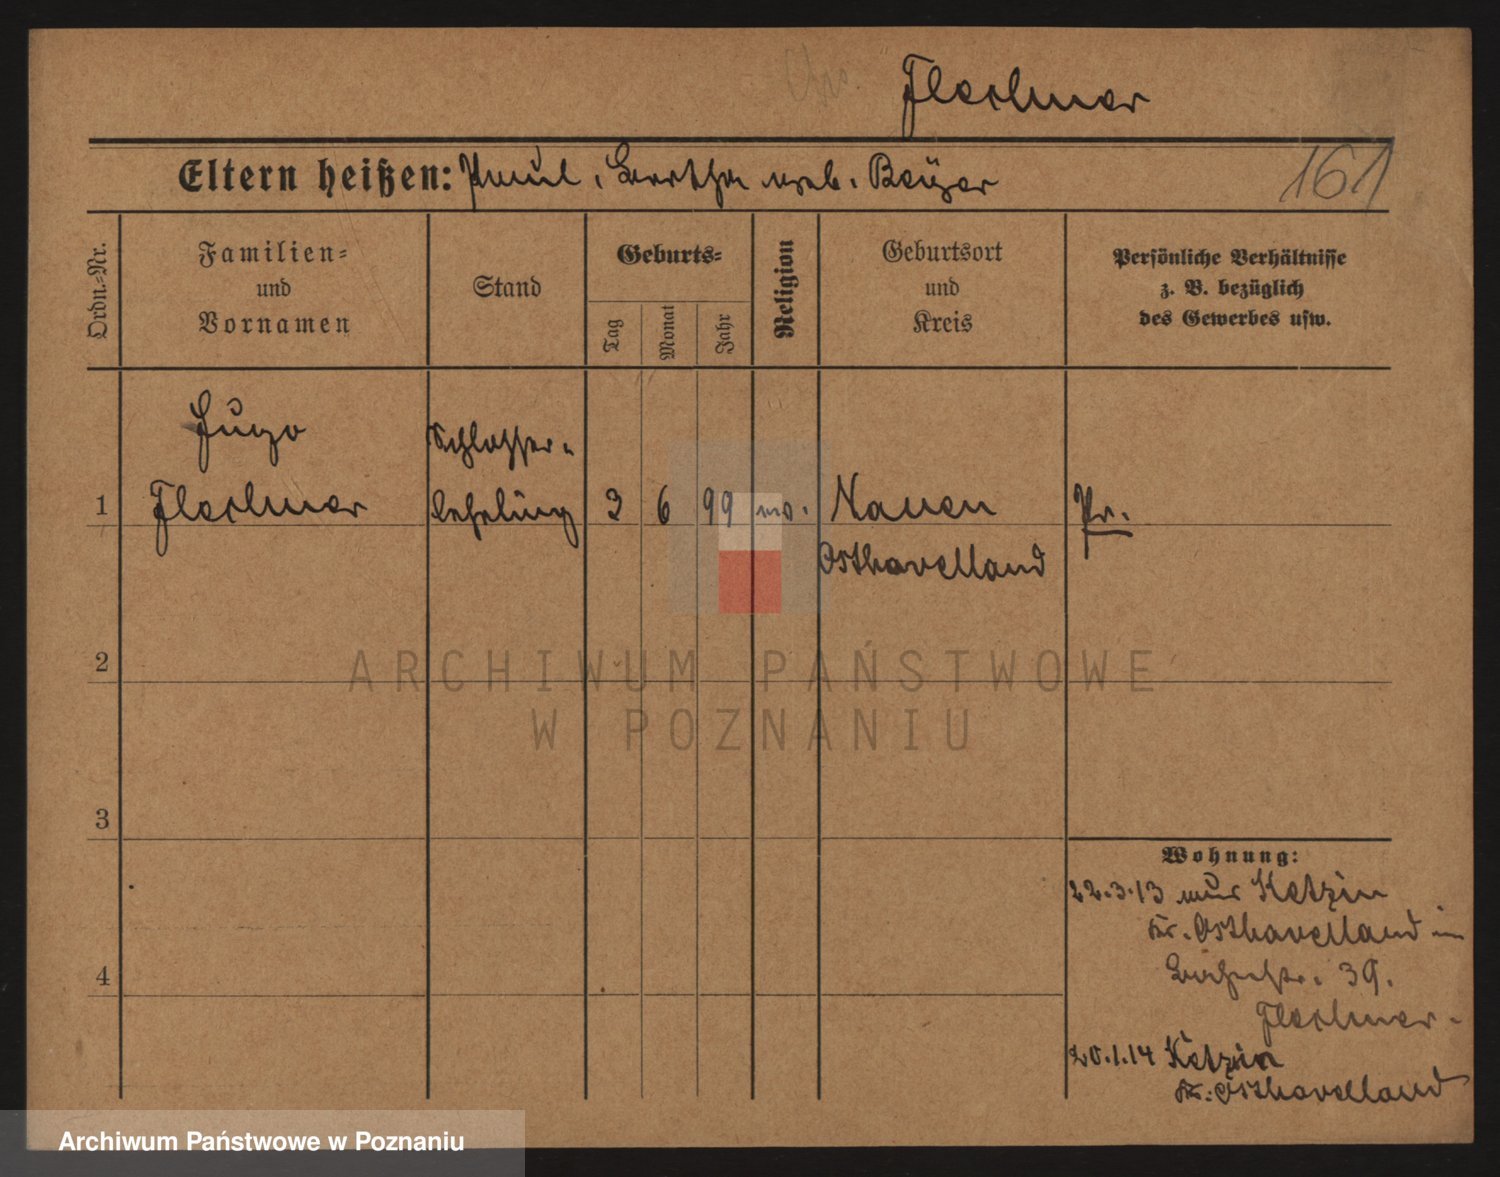 Fleihmer
Eltern heißen: Paul, Bertha geb. Beÿer
161
Ordn.-Nr.
Familien-
und
Vornamen
Stand
Geburts-
Tag
Monat
Jahr
Religion
Geburtsort
und
Kreis
Persönliche Verhältnisse
z. B. bezüglich
des Gewerbes usw.
Hugo
Schlosser-
1 lehrling 3 6 99 Nauen Pr.
Osthavelland
2
3
4
Wohnung:
22.3.13 Ketzin
Kr. Osthavelland
39.
20.1.14 Ketzin
Kr. Osthavelland
ARCHIWUM PAŃSTWOWE
W POZNANIU
Archiwum Państwowe w Poznaniu